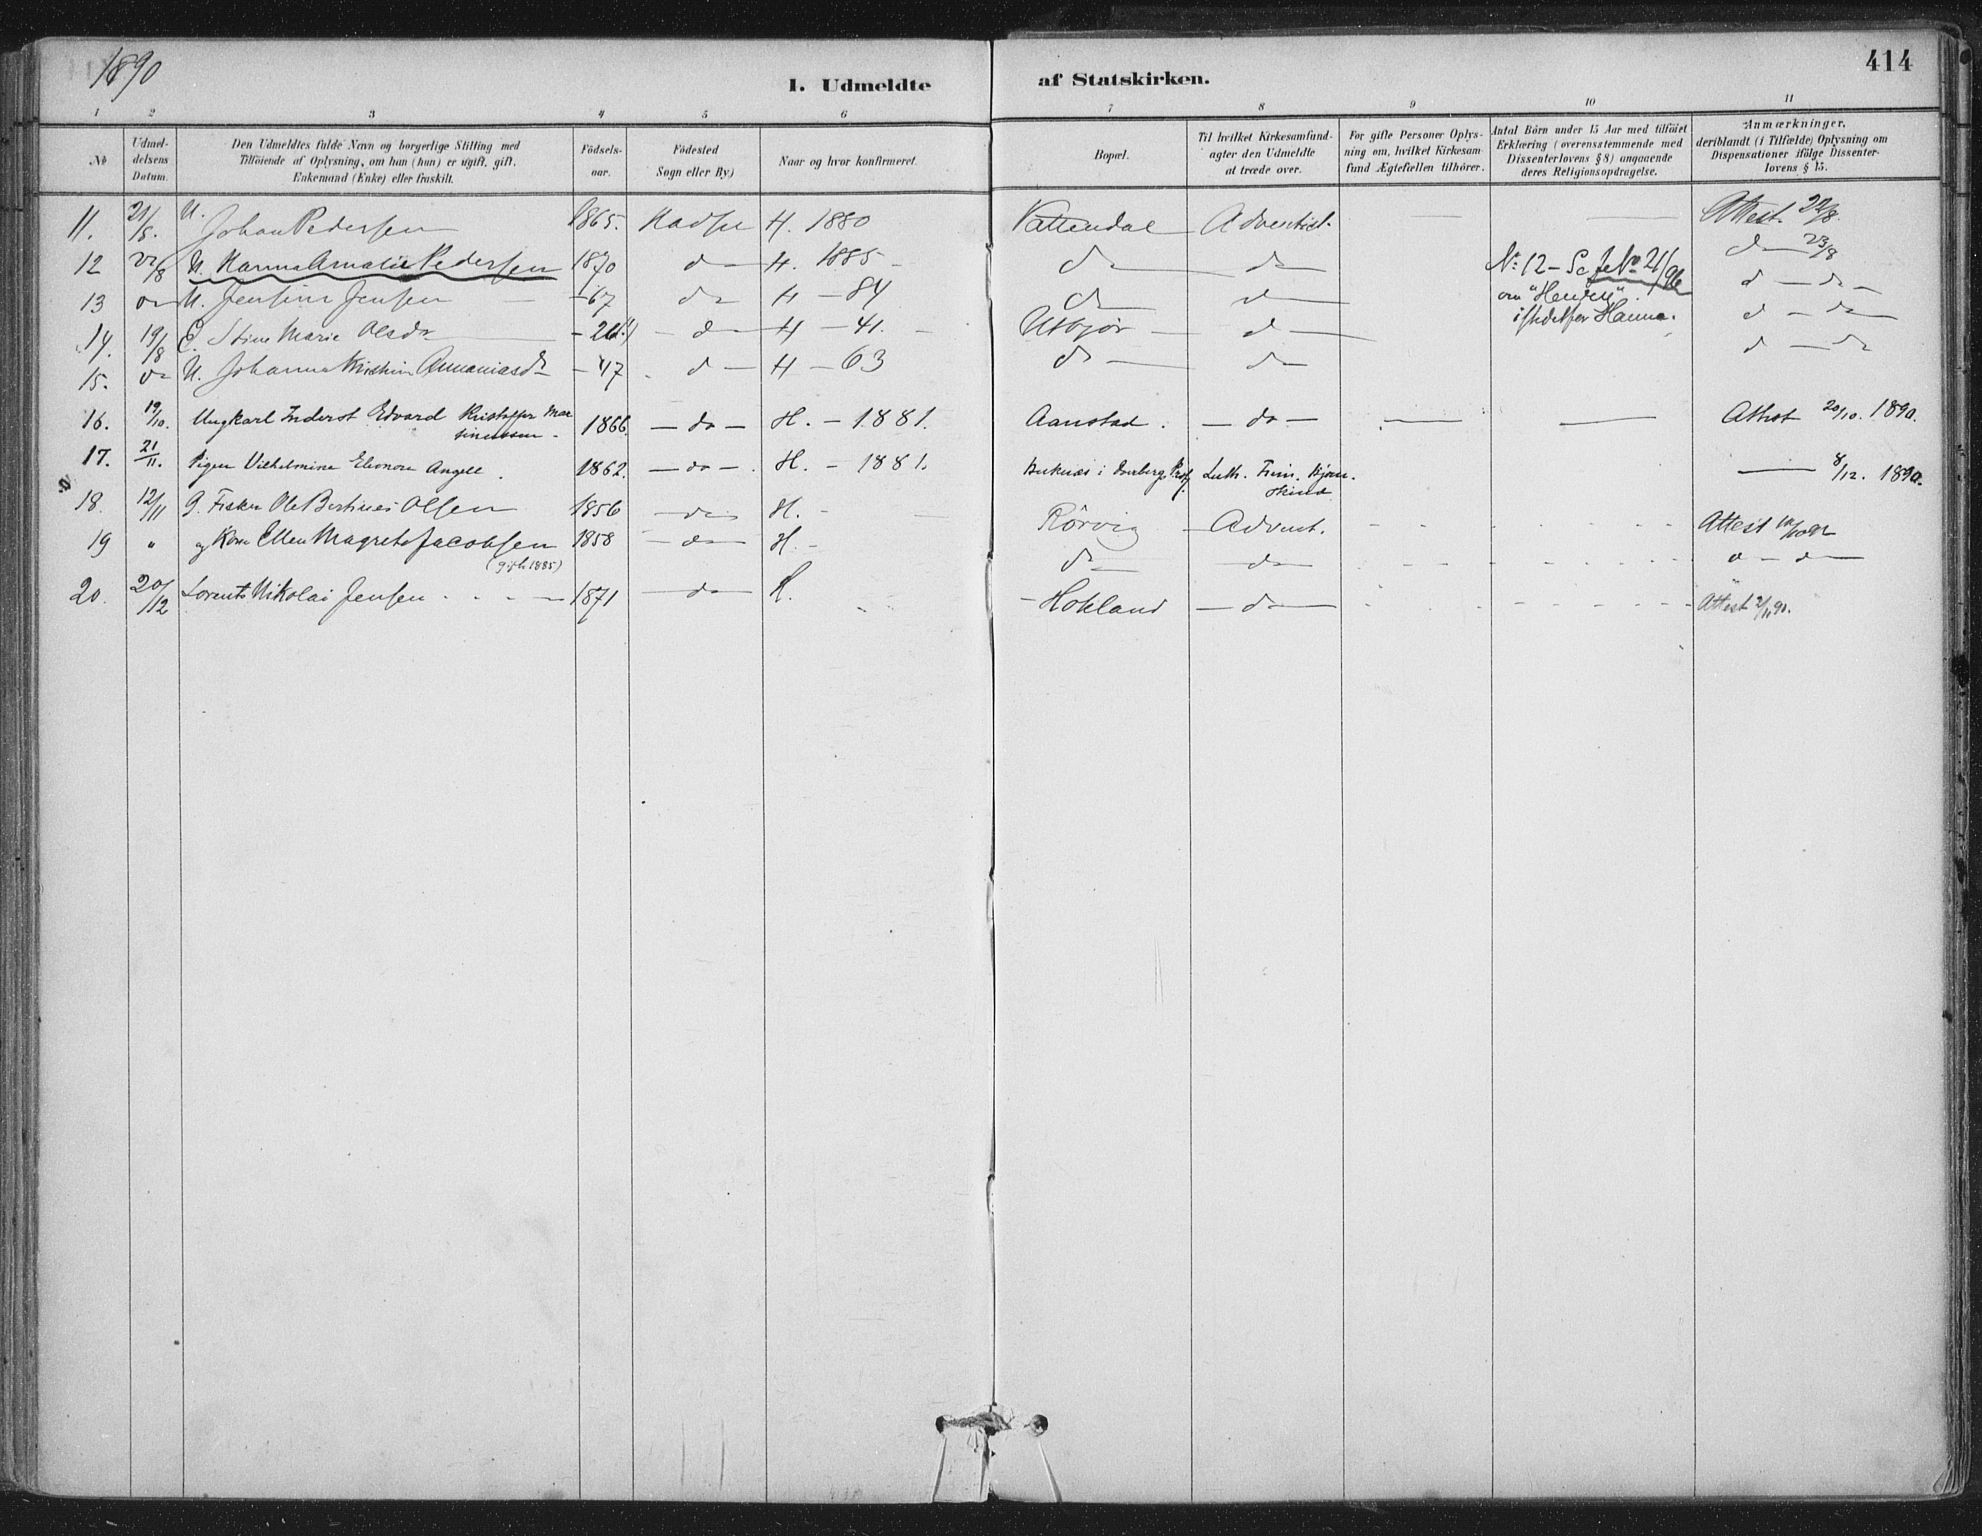 1890
414
1. Udmeldte af Statskirken.
1 2 3 4 5 6 7 8 9 10 11
No
Udmel-
delsens
Datum.
Den Udmeldtes fulde Navn og borgerlige Stilling med
Tilföiende af Oplysning, om han (hun) er ugift, gift,
Enkemand (Enke) eller fraskilt.
Födsels-
aar.
Födested
Sogn eller By.)
Naar og hvor konfirmeret.
Bopæl.
Til hvilket Kirkesamfund-
agter den Udmeldte
at træde over.
For gifte Personer Oplys-
ning om, hvilket Kirkesam-
fund Ægtefællen tilhörer.
Antal Börn under 15 Aar med tilföiet
Erklæring (overensstemmende med
Dissenterlovens § 8) angaaende
deres Religionsopdragelse.
Anmærkninger,
deriblandt (i Tilfælde) Oplysning om
Dispensationer ifölge Dissenter-
lovens § 15.
11. 21/8. U. Johan Pedersen 1865. Hadsel H. 1880 Adventist. — — Attest 22/8.
12 22/8 U. Hanna Amalie Pedersen 1870 do H. 1885 do do do 23/8
No 12 – Se No 21/96
om "Henrik"
istedetfor Hanna.
13 do U. Jensine Jensen – 67 do H – 84 do do do – do –
14. 19/8 E. Stine Marie Olsdr – 26 do H – 41. do do – do
15. do U. Johanna Kristine Ananiasdr – 47 do H – 63 do do do – do
16. 19/10. Ungkarl Inderst Edvard Kristoffer Mar
sinussen. 1866. – do – H. – 1881. Aanstad. – do – — — Attest 20/10. 1890.
17. 21/11. Pigen Vilhelmine Eleonore Angell. 1862. – do – H. – 1881. Buknæs i Luth. Frim. Björn-
skind — 8/12. 1890.
18. 12/11 g. Fisker Ole Bertines Olsen 1856 – do – H. – Rörvig – Advent. Attest
19 " og Kone Ellen Magrete Jacobsen 1858 – do – H. – do do do – do
(gift 1885)
20. 20/12 Lorents Nikolai Jensen 1871 – do H. – Hokland – do Attest